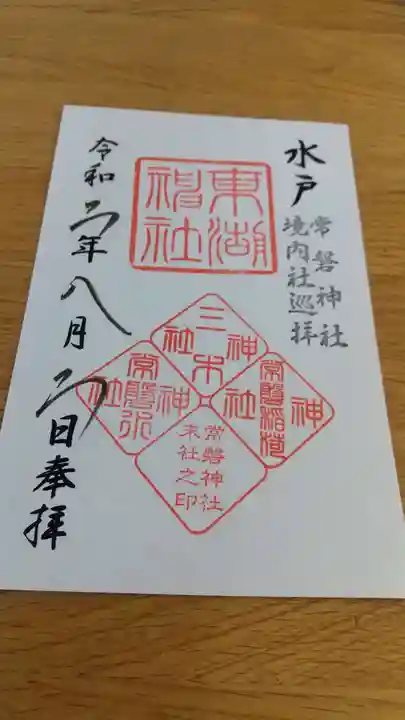 水戸
常磐神社
境内社巡拝
東湖
神社
三木神社
常磐稲荷神社
常磐神社
末社之印
令和二年八月二日奉拝